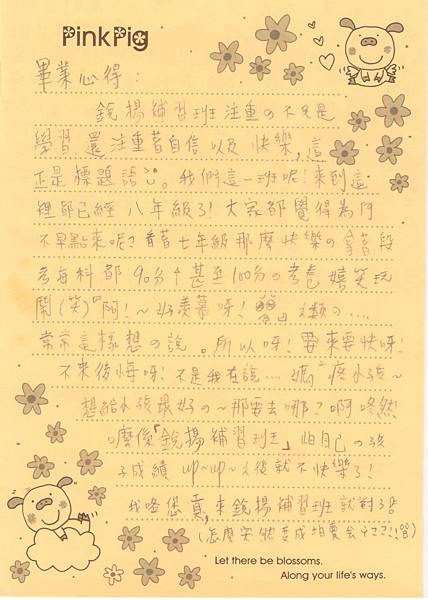 PinkPig
畢業心得
銳揚補習班注重の不只是
學習還注重著自信以及快樂,這
正是標題語。我們這一班呢!來到這
裡都已經八年級了!大家都覺得為
不早點來呢?看著七年級那麼快樂の拿著段
考每科都90分↑甚至100分の考卷嬉笑玩
鬧(笑)『阿!~好羨慕呀!
常常這樣想の說。所以呀!要來要快呀!
不來後悔呀!不是我在說…媽 疼小孩~
想給小孩最好の~那要去哪?啊咚然
「銳揚補習班」怕自己の孩
子成績up~up~之後就不快樂了!
我咯您真,來銳揚補習班就對了
(怎麼突然變成拍賣會
Let there be blossoms.
Along your life's ways.